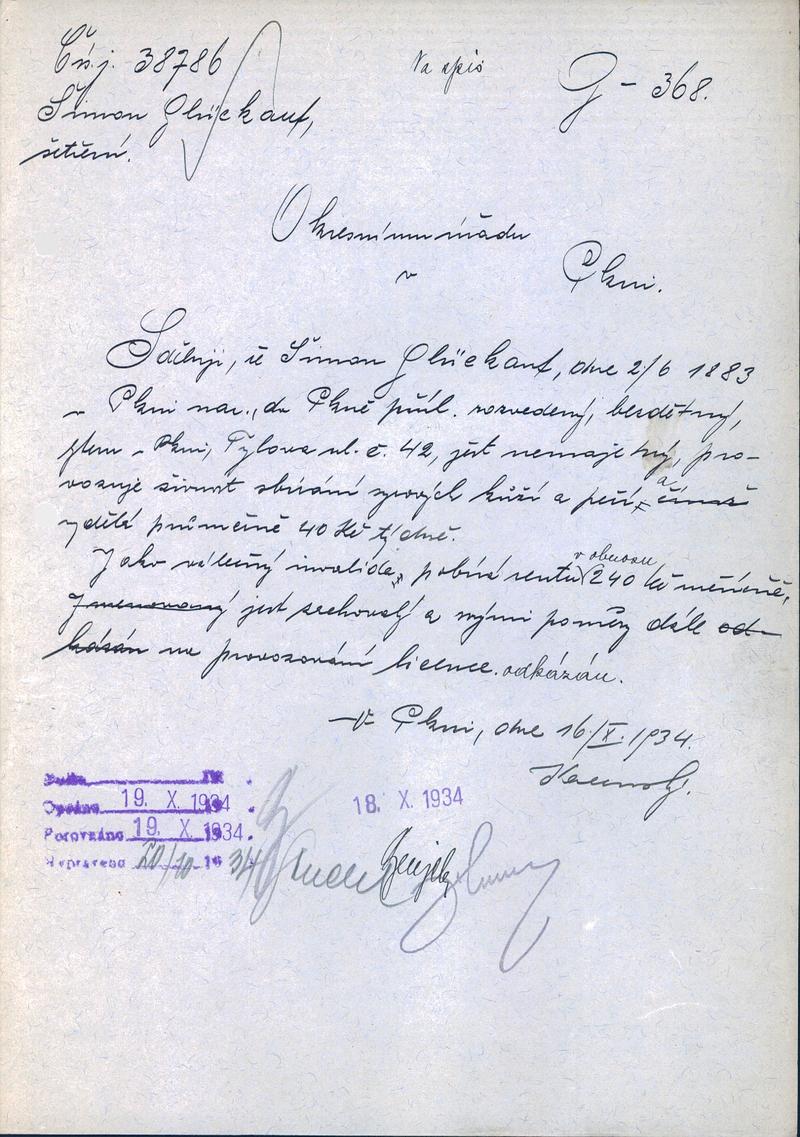 Čís.j. 38786
Na spis
G - 368.
Šimon Glückauf,
šetření.
Okresnímu úřadu
v
Plzni.
Sděluji, že Šimon Glückauf, dne 2/6 1883
v Plzni nar., do Plzně přísl. rozvedený, bezdětný,
bytem v Plzni, Tylova ul. č. 42, jest nemajetný, pro-
vozuje živnost sbírání syrových kůží a peří, a čímž
vydělá průměrně 40 Kč týdně.
Jako válečný invalida, pobírá rentu v obnosu 240 Kč měsíčně,
Jmenovaný jest zachovalý a svými poměry dále od-
kázán na provozování licence. odkázán.
V Plzni, dne 16/X. 1934.
18. X. 1934
Opsáno 19. X. 1934
Porovnáno 19. X. 1934.
Vypraveno 20/10 1934